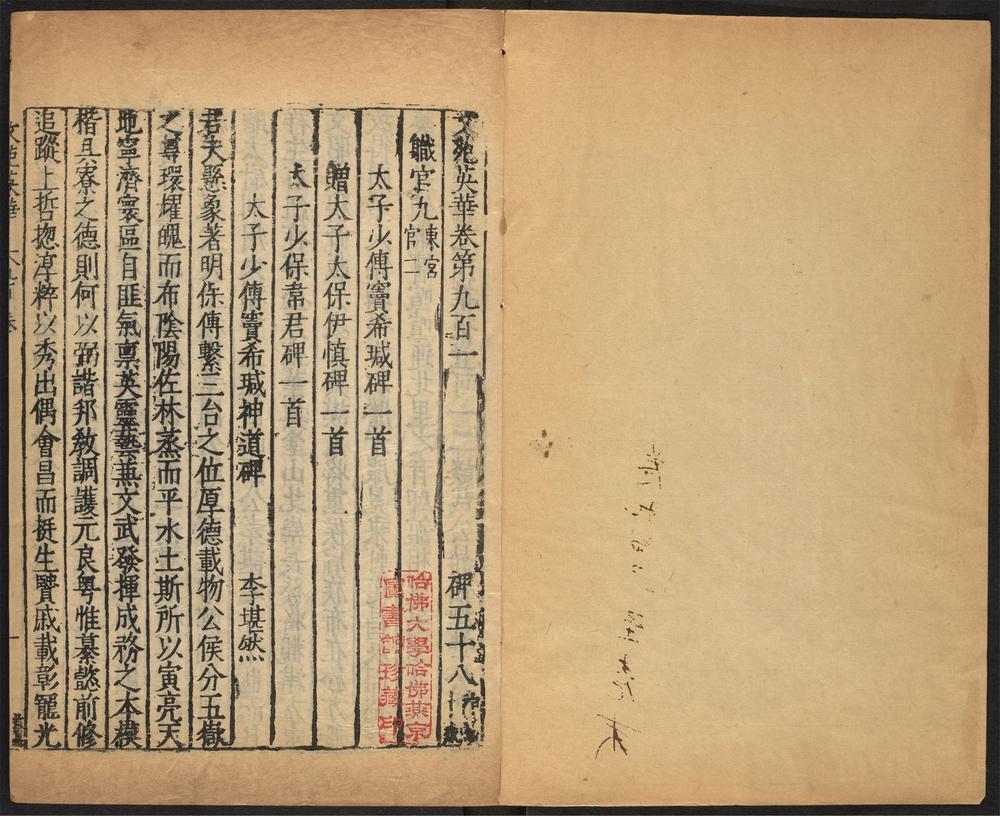 文苑英華卷第九百一 碑五十八
職官九 東宮官二
太子少傅竇希瑊碑一首
贈太子太保伊慎碑一首
太子少保韋君碑一首
太子少傅竇希瑊神道碑 李堪然
君夫懸象著明保傅繫三台之位厚德載物公侯分五嶽
之尊環耀魄而布陰陽佐林蒸而平水土斯所以寅亮天
地寧濟寰區自匪氣禀英靈藝蒹文武發揮成務之本模
楷具寮之德則何以弼諧邦教調護元良粤惟纂懿前修
追蹤上哲揔淳粹以秀出偶會昌而挺生賢戚載彰寵光
哈佛大學哈佛燕京
圖書館珍藏印